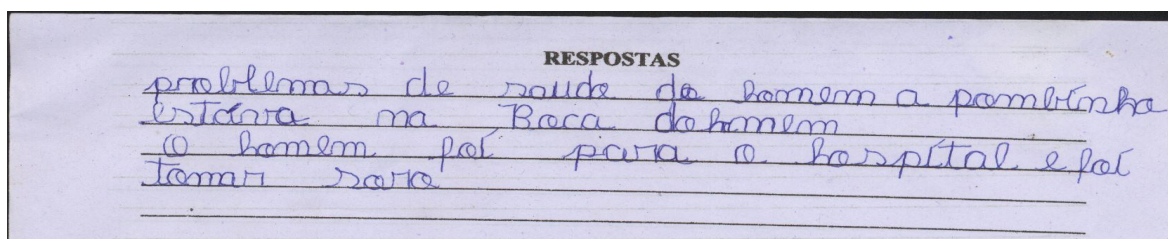 RESPOSTAS
problemas de saude do homem a pombinha
estava na Boca do homem
O homem foi para o hospital e foi
tomar soro